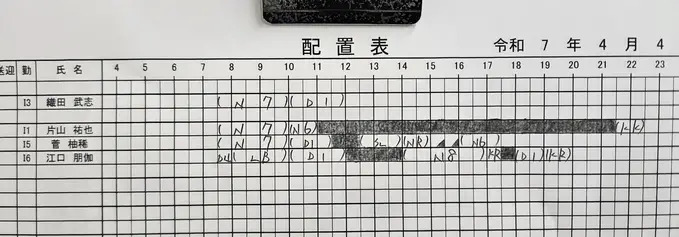 配置表 令和 7 年 4 月 4
送迎 勤 氏名 4 5 6 7 8 9 10 11 12 13 14 15 16 17 18 19 20 21 22 23
I3 織田 武志 (N 7)(D1)
I1 片山 祐也 (N 7)(N6) (KK)
I5 菅 柚稀 (N 7)(D1 (SL)(NR) (N6)
I6 江口 朋伽 D4(LB)(D1) (N8)KR (D1)(KR)